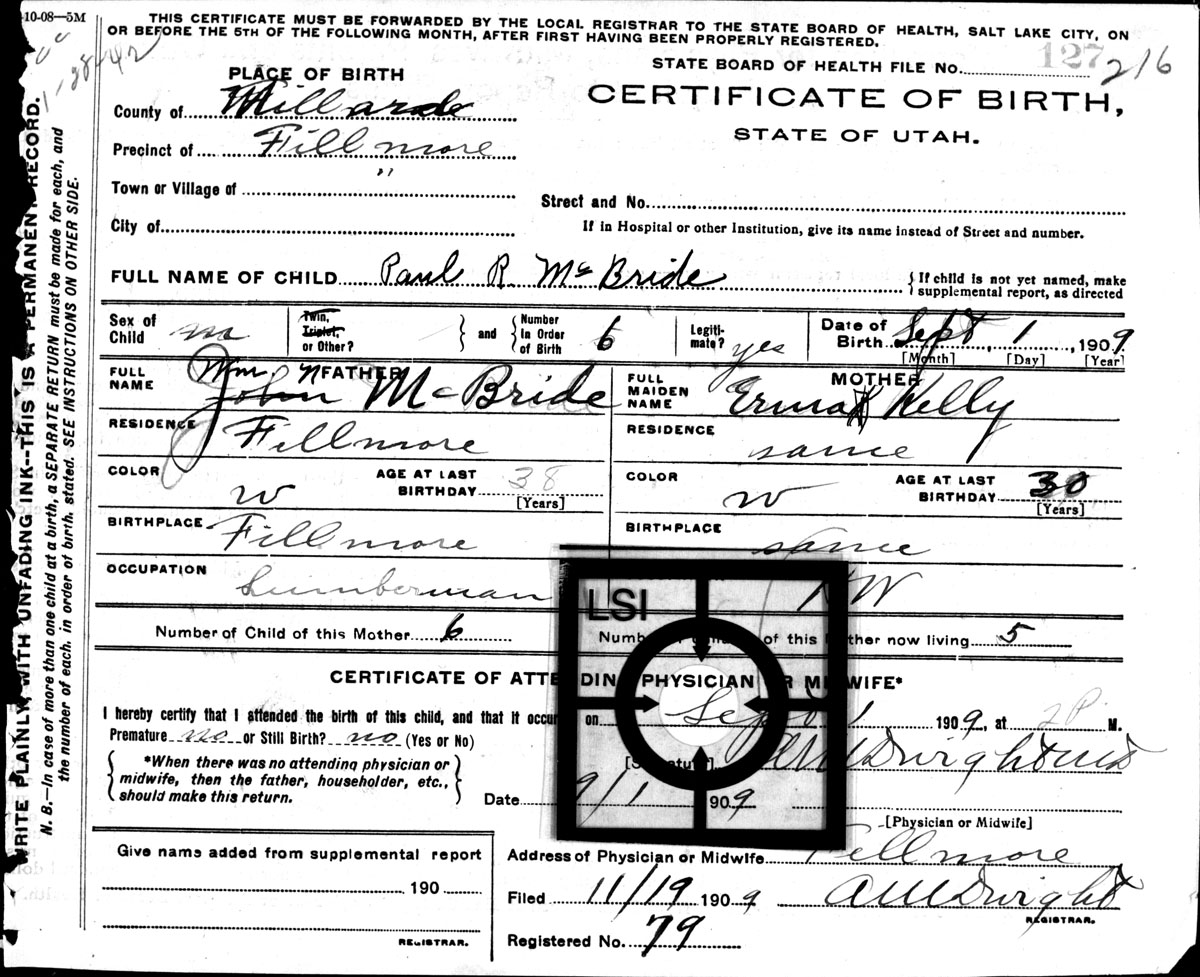 10-08—5M
THIS CERTIFICATE MUST BE FORWARDED BY THE LOCAL REGISTRAR TO THE STATE BOARD OF HEALTH, SALT LAKE CITY, ON
OR BEFORE THE 5TH OF THE FOLLOWING MONTH, AFTER FIRST HAVING BEEN PROPERLY REGISTERED.
STATE BOARD OF HEALTH FILE No. 127 216
PLACE OF BIRTH
CERTIFICATE OF BIRTH,
STATE OF UTAH.
County of Millarde
Precinct of Fillmore
Town or Village of "
Street and No.
City of
If in Hospital or other Institution, give its name instead of Street and number.
FULL NAME OF CHILD Paul R. McBride
{ If child is not yet named, make
supplemental report, as directed
Sex of Child m
Twin, Triplet, or Other?
} and { Number in Order of Birth 6
Legiti-mate? yes
Date of Birth Sept 1, 1909
[Month] [Day] [Year]
FATHER
FULL NAME Wm. John McBride
MOTHER
FULL MAIDEN NAME Erma Kelly
RESIDENCE Fillmore
RESIDENCE same
COLOR w
AGE AT LAST BIRTHDAY 38
[Years]
COLOR w
AGE AT LAST BIRTHDAY 30
[Years]
BIRTHPLACE Fillmore
BIRTHPLACE same
OCCUPATION Lumberman
LSI
Number of Child of this Mother 6
Number of of this Mother now living 5
CERTIFICATE OF ATTENDING PHYSICIAN OR MIDWIFE*
I hereby certify that I attended the birth of this child, and that it occur on Sept 1 1909, at 2 P. M.
Premature no or Still Birth? no (Yes or No)
{ *When there was no attending physician or
midwife, then the father, householder, etc.,
should make this return. }
[Signature] A M Dwight M D
Date 9/1 1909
[Physician or Midwife]
Give name added from supplemental report
190
REGISTRAR.
Address of Physician or Midwife Fillmore
Filed 11/19 1909
A M Dwight
REGISTRAR.
Registered No. 79
WRITE PLAINLY, WITH UNFADING INK—THIS IS A PERMANENT RECORD.
N. B.—In case of more than one child at a birth, a SEPARATE RETURN must be made for each, and
the number of each, in order of birth, stated. SEE INSTRUCTIONS ON OTHER SIDE.